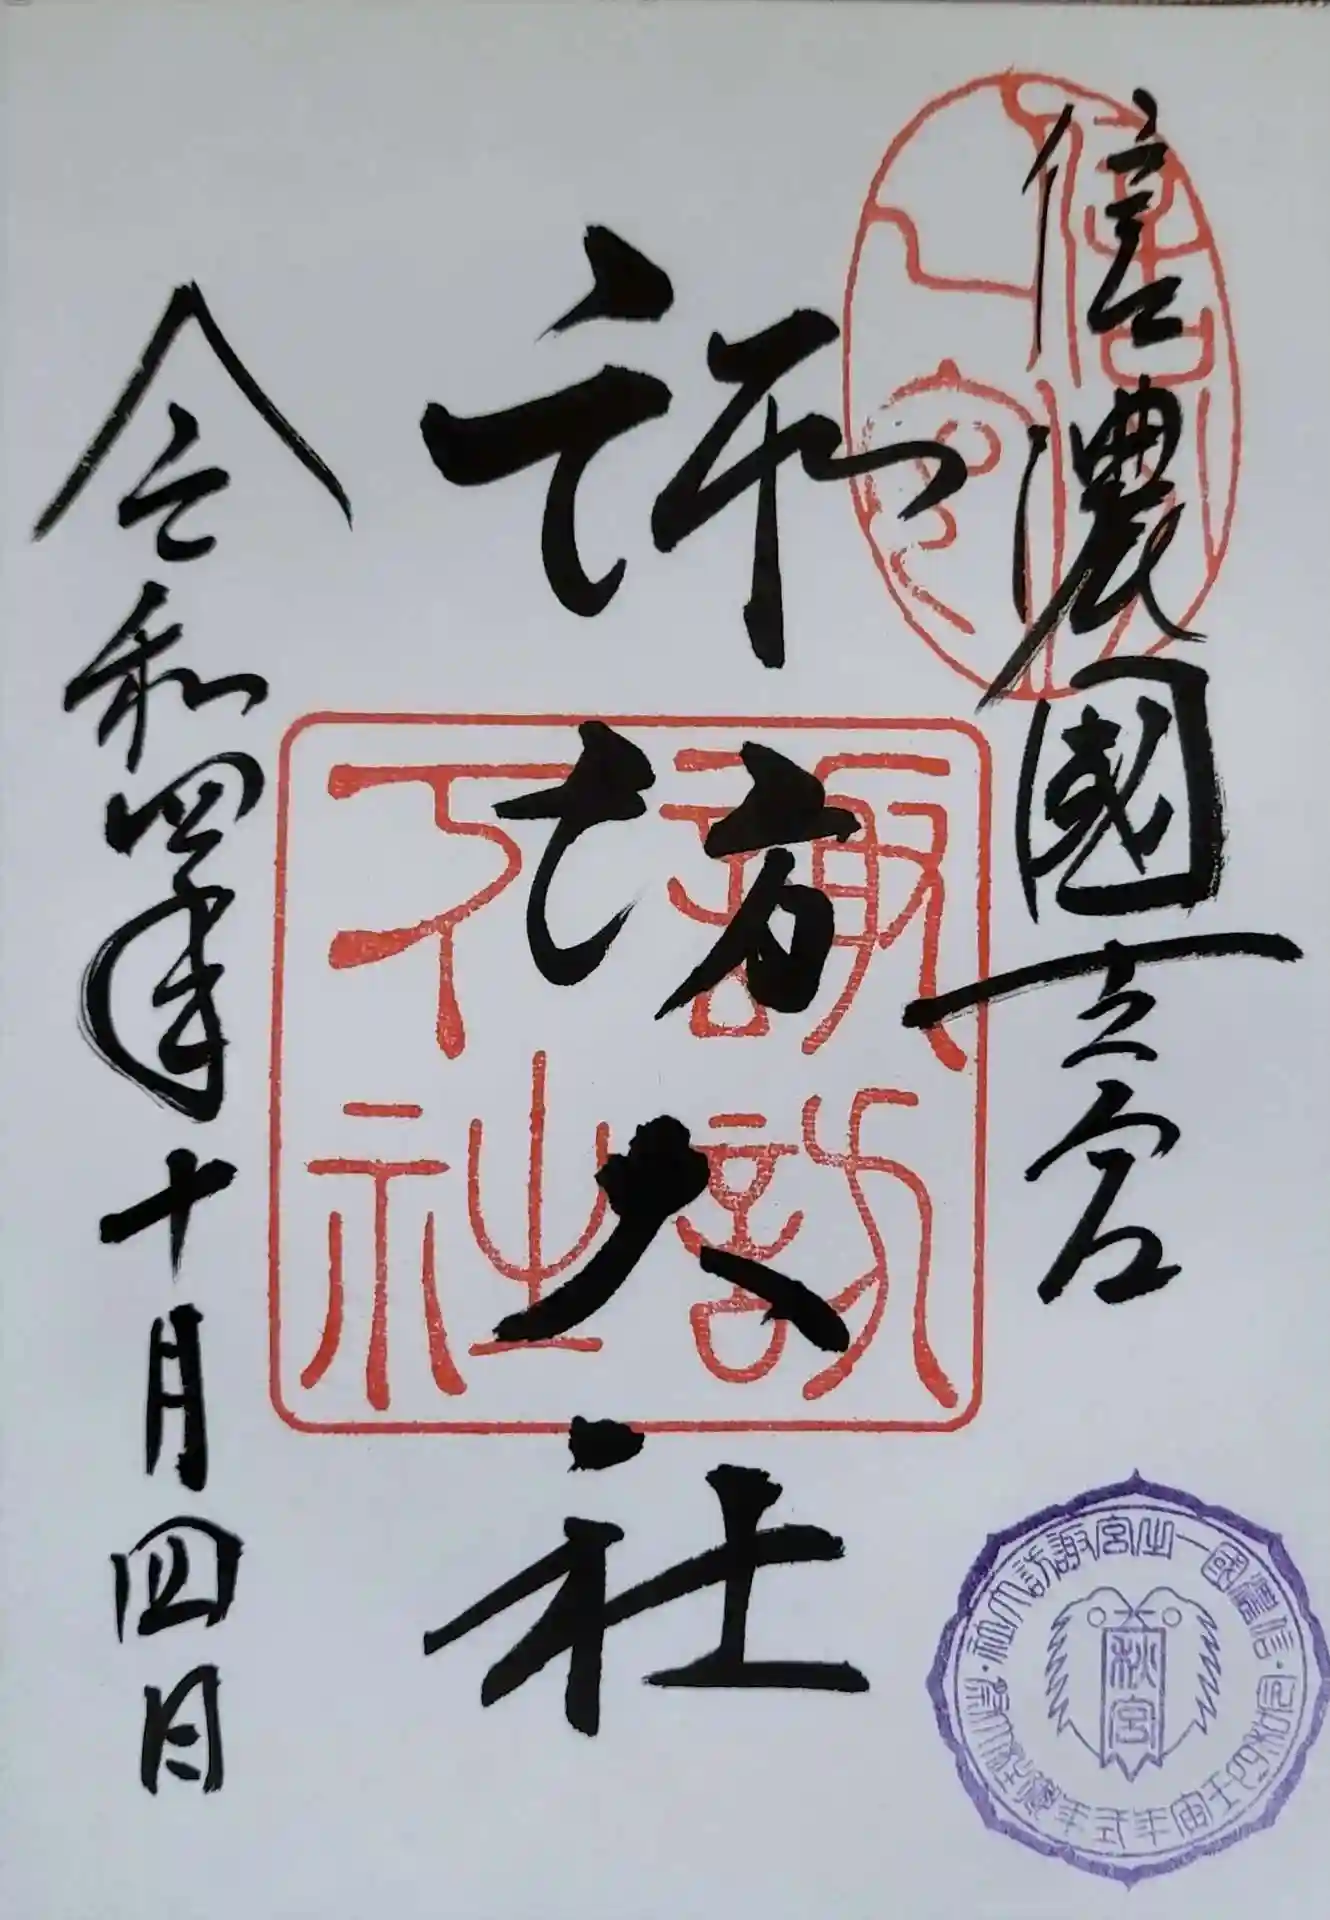 信濃國一之宮
諏訪大社
令和四年十月四日
諏訪
下社
信濃國一之宮諏訪大社
令和四壬寅年式年造営御柱大祭
秋宮